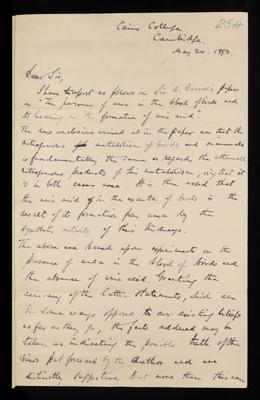 254
Caius College
Cambridge.
May 24. 1893.
Dear Sir,
I have to report as follows on Sir A. Garrod's paper
on "The presence of urea in the blood of birds and
its bearing on the formation of uric acid."
The new conclusions arrived at in the paper are that the
nitrogenous metabolism of birds and mammals
is fundamentally the same as regards the ultimate
nitrogenous products of this metabolism, viz. that it
is in both cases urea. It is then urged that
the uric acid in the excreta of birds is the
result of its formation from urea by the
synthetic activity of the kidneys.
The above are based upon experiments on the
presence of urea in the blood of birds and
the absence of uric acid. Granting the
accuracy of the latter statements, which are
in some ways opposed to our existing beliefs
as far as they go, the facts adduced may be
taken as indicating the possible truth of the
views put forward by the Author and are
distinctly suggestive. But more than this can